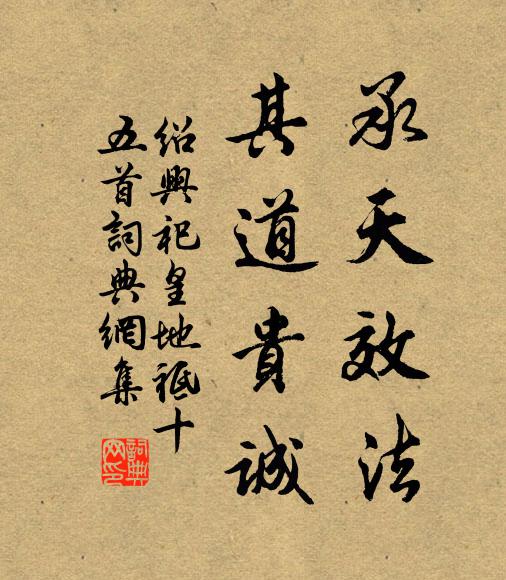 承天效法
其道貴誠
紹興祀皇地祇十
五首詞典網集
詞典
网印